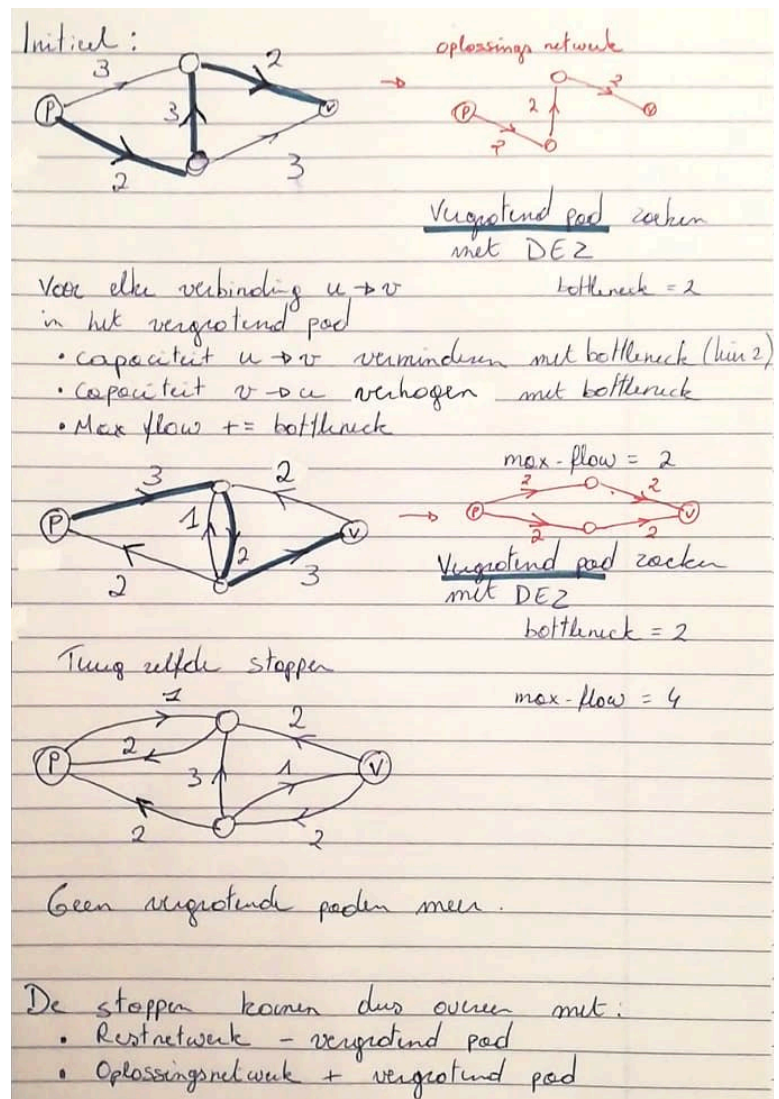 Initieel :
oplossings netwerk
3
2
P
3
v
2
3
P
2
2
2
v
Vergrotend pad zoeken
met DEZ
bottleneck = 2
Voor elke verbinding u → v
in het vergrotend pad
• capaciteit u → v verminderen met bottleneck (hier 2)
• capaciteit v → u verhogen met bottleneck
• Max flow += bottleneck
max-flow = 2
3
2
P
1
2
v
2
3
2
2
P
v
2
2
Vergrotend pad zoeken
met DEZ
bottleneck = 2
Terug zelfde stappen
max-flow = 4
1
2
2
P
3
1
v
2
2
Geen vergrotende paden meer.
De stappen komen dus overeen met :
• Restnetwerk - vergrotend pad
• Oplossingsnetwerk + vergrotend pad